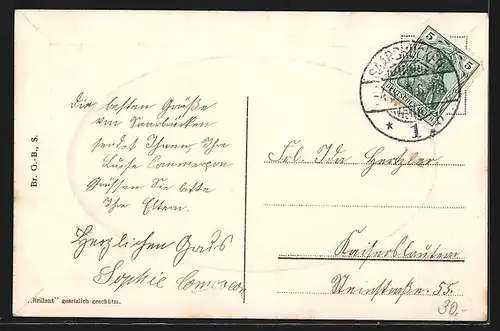 5 5
SAARBRÜCKEN
DEUTSCHES REICH
* 1
Die besten Grüße
von Saarbrücken
sendet Ihnen, Ihre
Luise
Grüssen Sie bitte
Ihre Eltern.
Herzlichen Gruß
Sophie
Frl. Ida Hertzler.
Kaiserslautern
Steinstraße. 55.
30.-
Br. G.-B., S.
„Brillant" gesetzlich geschützt.